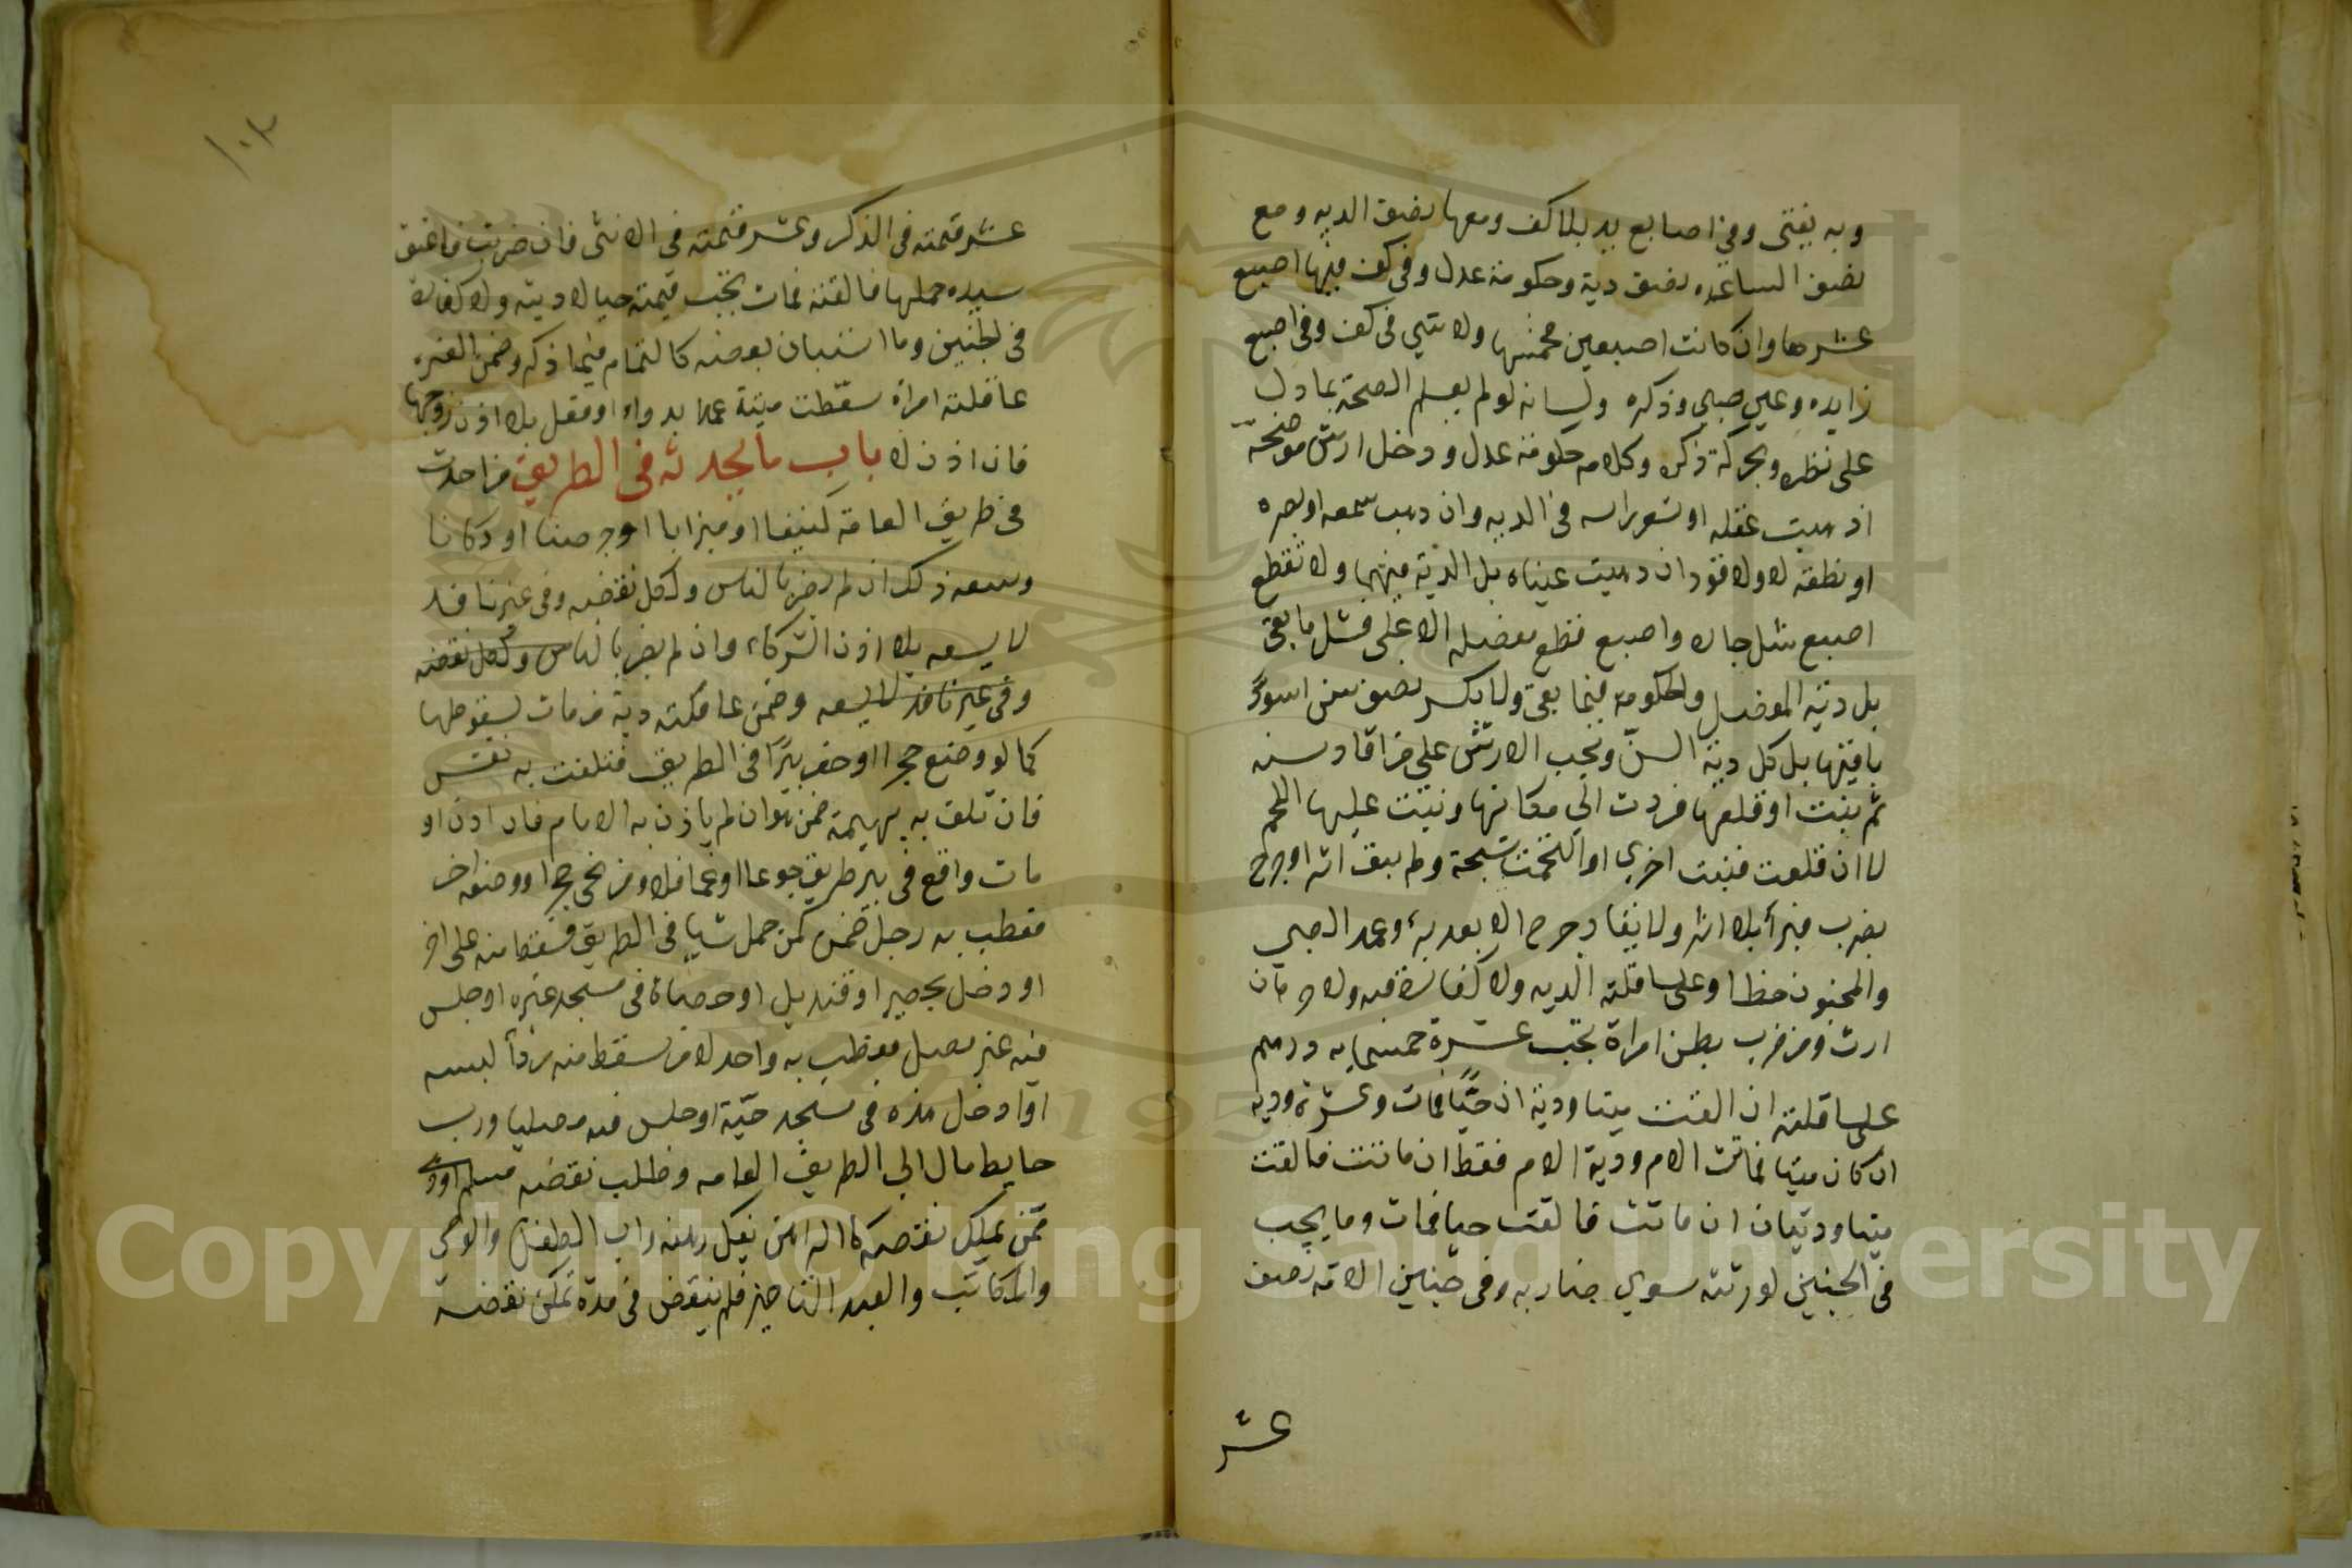 وبه يفتى وفي اصابع يد بلا كف ومعها نصف الديه ومع
نصف الساعده نصف دية وحكومة عدل وفى كف فيها اصبع
عشرها وان كانت اصبعين فخمسها ولا شي فى كف وفى اصبع
زايده وعين صبي وذكره ولسانه لو لم يعلم الصحة بما دل
على نظره وبحركة ذكره وكلامه حكومة عدل ودخل ارش موضحة
اذهبت عقله او شعر راسه فى الديه وان ذهب سمعه او بصره
او نطقه لا ولا قود ان ذهبت عيناه بل الدية فيهما ولا تقطع
اصبع شل جاره واصبع قطع مفصله الاعلى فشل ما بقى
بل دية المفصل والحكومة فيما بقى ولا بكسر نصف سن اسود
باقيها بل كل دية السنّ ويجب الارش على من اقاد سنه
ثم نبتت او قلعها فردت الى مكانها ونبتت عليها اللحم
لا ان قلعت فنبتت اخرى او التحمت شجة ولم يبق اثر او جرح
بضرب فبرأ بلا اثر ولا يقاد جرح الا بعد برء وعمد الصبي
والمجنون خطا وعلى عاقلته الديه ولا كفارة فيه ولا حرمان
ارث ومن ضرب بطن امراة تجب غرة خمسمايه درهم
على عاقلته ان القت ميتا ودية ان حيّا فمات وغرة ودية
ان كان ميتا فماتت الام ودية الام فقط ان ماتت فالقت
ميتا وديتان ان ماتت فالقت حيا فمات وما يجب
فى الجنين لورثته سوى ضاربه وفى جنين الامة نصف
عشر
١٠٣
عشر قيمته فى الذكر وعشر قيمته فى الانثى فان ضربت فاعتق
سيده حملها فالقته فمات تجب قيمته حيا لا ديته ولا كفارة
فى الجنين وما استبان بعضه كالتمام فيما ذكر وضمن الغره
عاقلته امراة سقّطت ميتة عمدا بدواء او فعل بلا اذن زوجها
فان اذن لا باب ما يحدثه فى الطريق من احدث
فى طريق العامة كنيفا او ميزابا او جرصنا او دكانا
وسعه ذلك ان لم يضر بالناس ولكل نقضه وفى غير نافذ
لا يسعه بلا اذن الشركاء وان لم يضر بالناس ولكل نقضه
وفى غير نافذ لا يسعه وضمن عاقلته دية من مات بسقوطها
كما لو وضع حجرا او حفر بئرا فى الطريق فتلفت به نفس
فان تلف به بهيمة ضمن هو ان لم ياذن به الامام فان اذن او
مات واقع فى بير طريق جوعا او غما فلا ومن نحى حجرا او وضعه اخر
فعطب به رجل ضمن كمن حمل شيا فى الطريق فسقط منه على اخر
او دخل بحصير او قنديل او حصاة فى مسجد غيره او جلس
فيه غير مصل فعطب به واحد لا من سقط منه ردأ لبسه
او ادخل هذه فى مسجد حيّه او جلس فيه مصليا ورب
حايط مال الى الطريق العامه وطلب نقضه مسلم او ذمى
ممن يملك نقضه كالراهن بفك رهنه واب الطفل والوصى
والمكاتب والعبد التاجر فلم ينقض فى مدة تمكن نقضه
Copyright © King Saud University
195